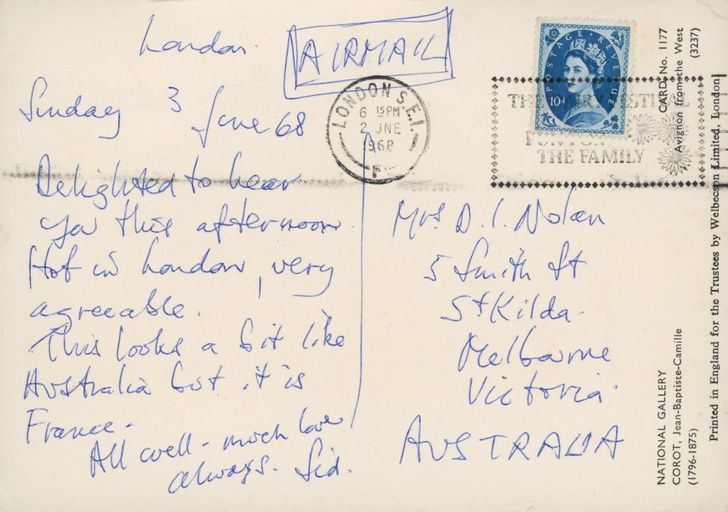 London.
AIRMAIL
Sunday 3 June 68
Delighted to hear
you this afternoon.
Hot in London, very
agreeable.
This looks a bit like
Australia but it is
France.
All well - much love
always. Sid.
LONDON S.E.1.
6 15PM
2 JNE
1968
F
POSTAGE REVENUE
10d
THE FAMILY
Mrs D. I. Nolan
5 Smith St
St Kilda.
Melbourne
Victoria.
AUSTRALIA
NATIONAL GALLERY
COROT, Jean-Baptiste-Camille
(1796-1875)
CARD No. 1177
Avignon from the West
(3237)
Printed in England for the Trustees by Welbecson Limited, London